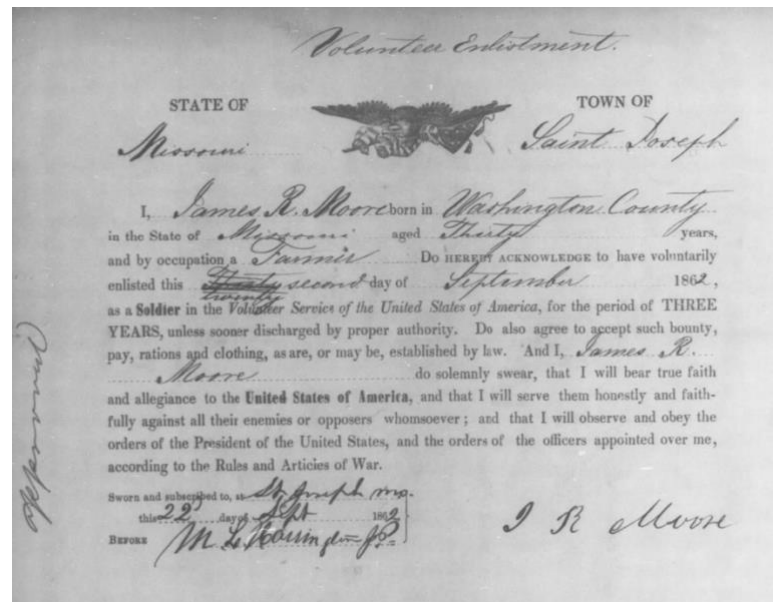 Volunteer Enlistment.
STATE OF TOWN OF
Missouri Saint Joseph
I, James R. Moore born in Washington County
in the State of Missouri aged Thirty years,
and by occupation a Farmer Do HEREBY ACKNOWLEDGE to have voluntarily
enlisted this second day of September 1862,
twenty
as a Soldier in the Volunteer Service of the United States of America, for the period of THREE
YEARS, unless sooner discharged by proper authority. Do also agree to accept such bounty,
pay, rations and clothing, as are, or may be, established by law. And I, James R.
Moore do solemnly swear, that I will bear true faith
and allegiance to the United States of America, and that I will serve them honestly and faith-
fully against all their enemies or opposers whomsoever; and that I will observe and obey the
orders of the President of the United States, and the orders of the officers appointed over me,
according to the Rules and Articles of War.
Sworn and subscribed to, at St. Joseph Mo.
this 22d day of Sept 1862
BEFORE M L J.P.
J R Moore